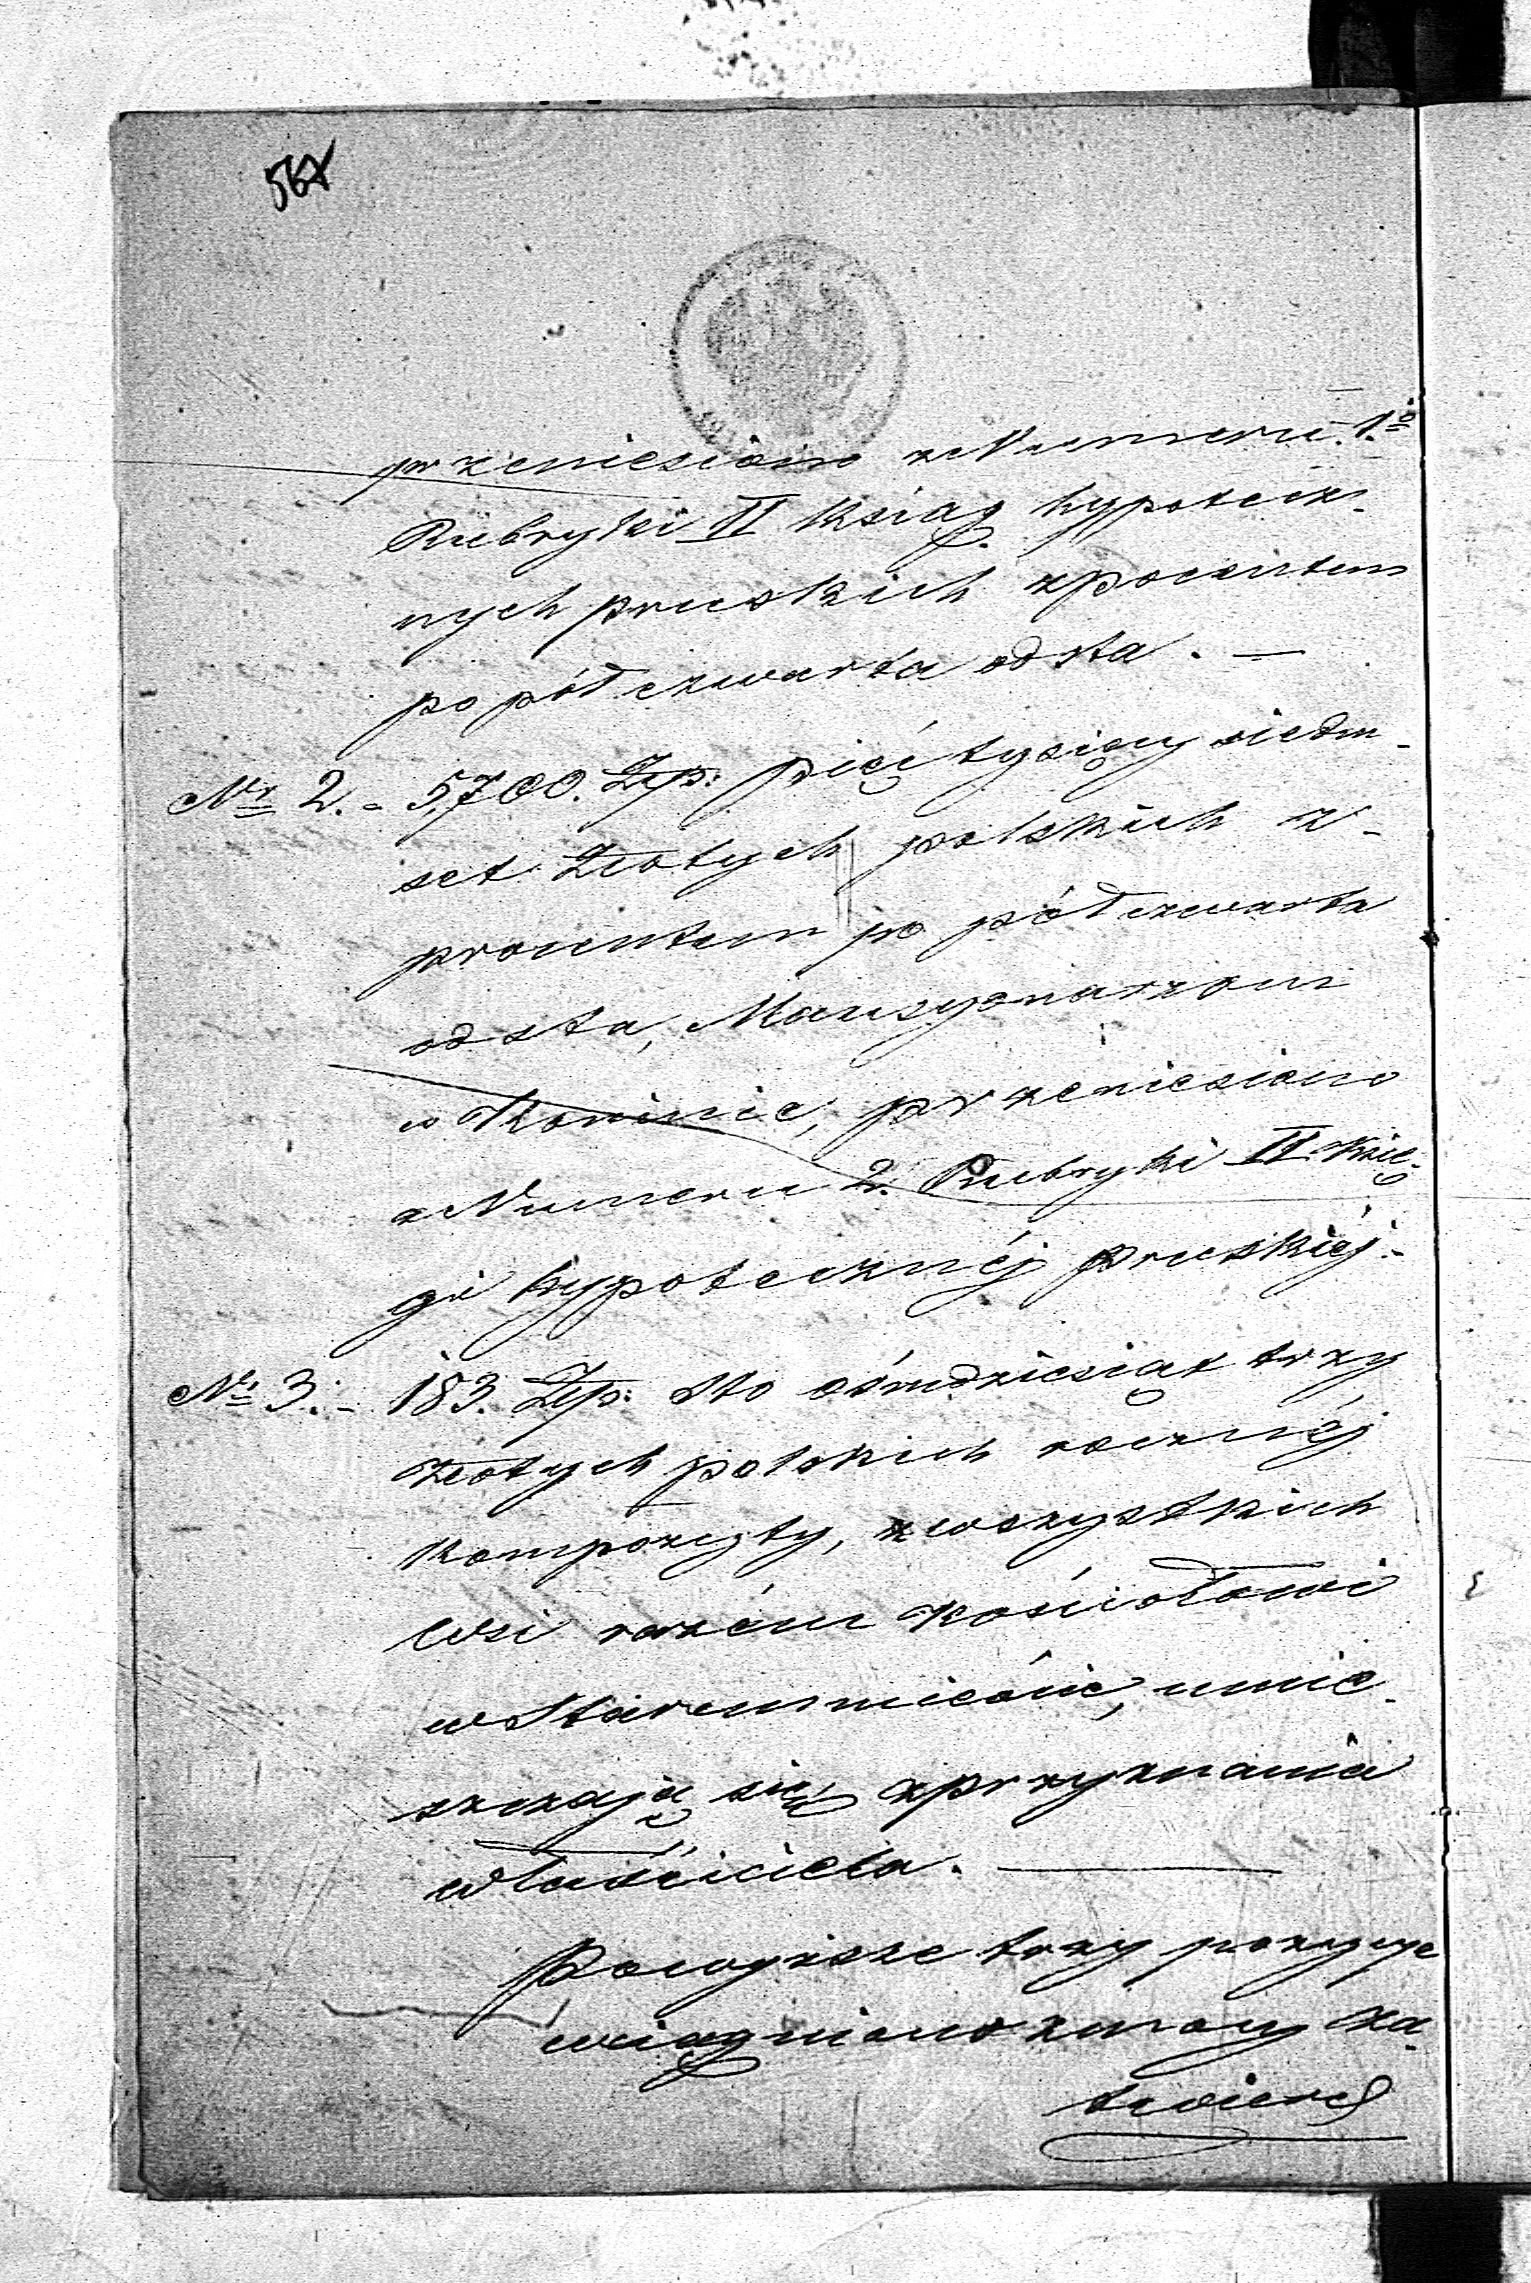 567
przeniesiono z Numeru 1o
Rubryki II Ksiąg hypotecz-
nych pruskich z procentem
po półczwarta od sta. —
Nr 2. - 5,700. Złp: pięć tysięcy siedm-
set złotych polskich z-
procentem po półczwarta
od sta, Mansyonarzom
w Koninie, przeniesiono
z Numeru 2. Rubryki II Księ-
gi hypotecznéj Pruskiéj.-
Nr 3. - 183. Złp: sto ośmdziesiąt trzy
złotych polskich rocznéj
kompozyty, z wszystkich
wsi razem kościołowi
w Staremmieście, umie-
szczają się z przyznania
właściciela. —
Powyższe trzy pozycye
wciągniono z mocy za-
twierd